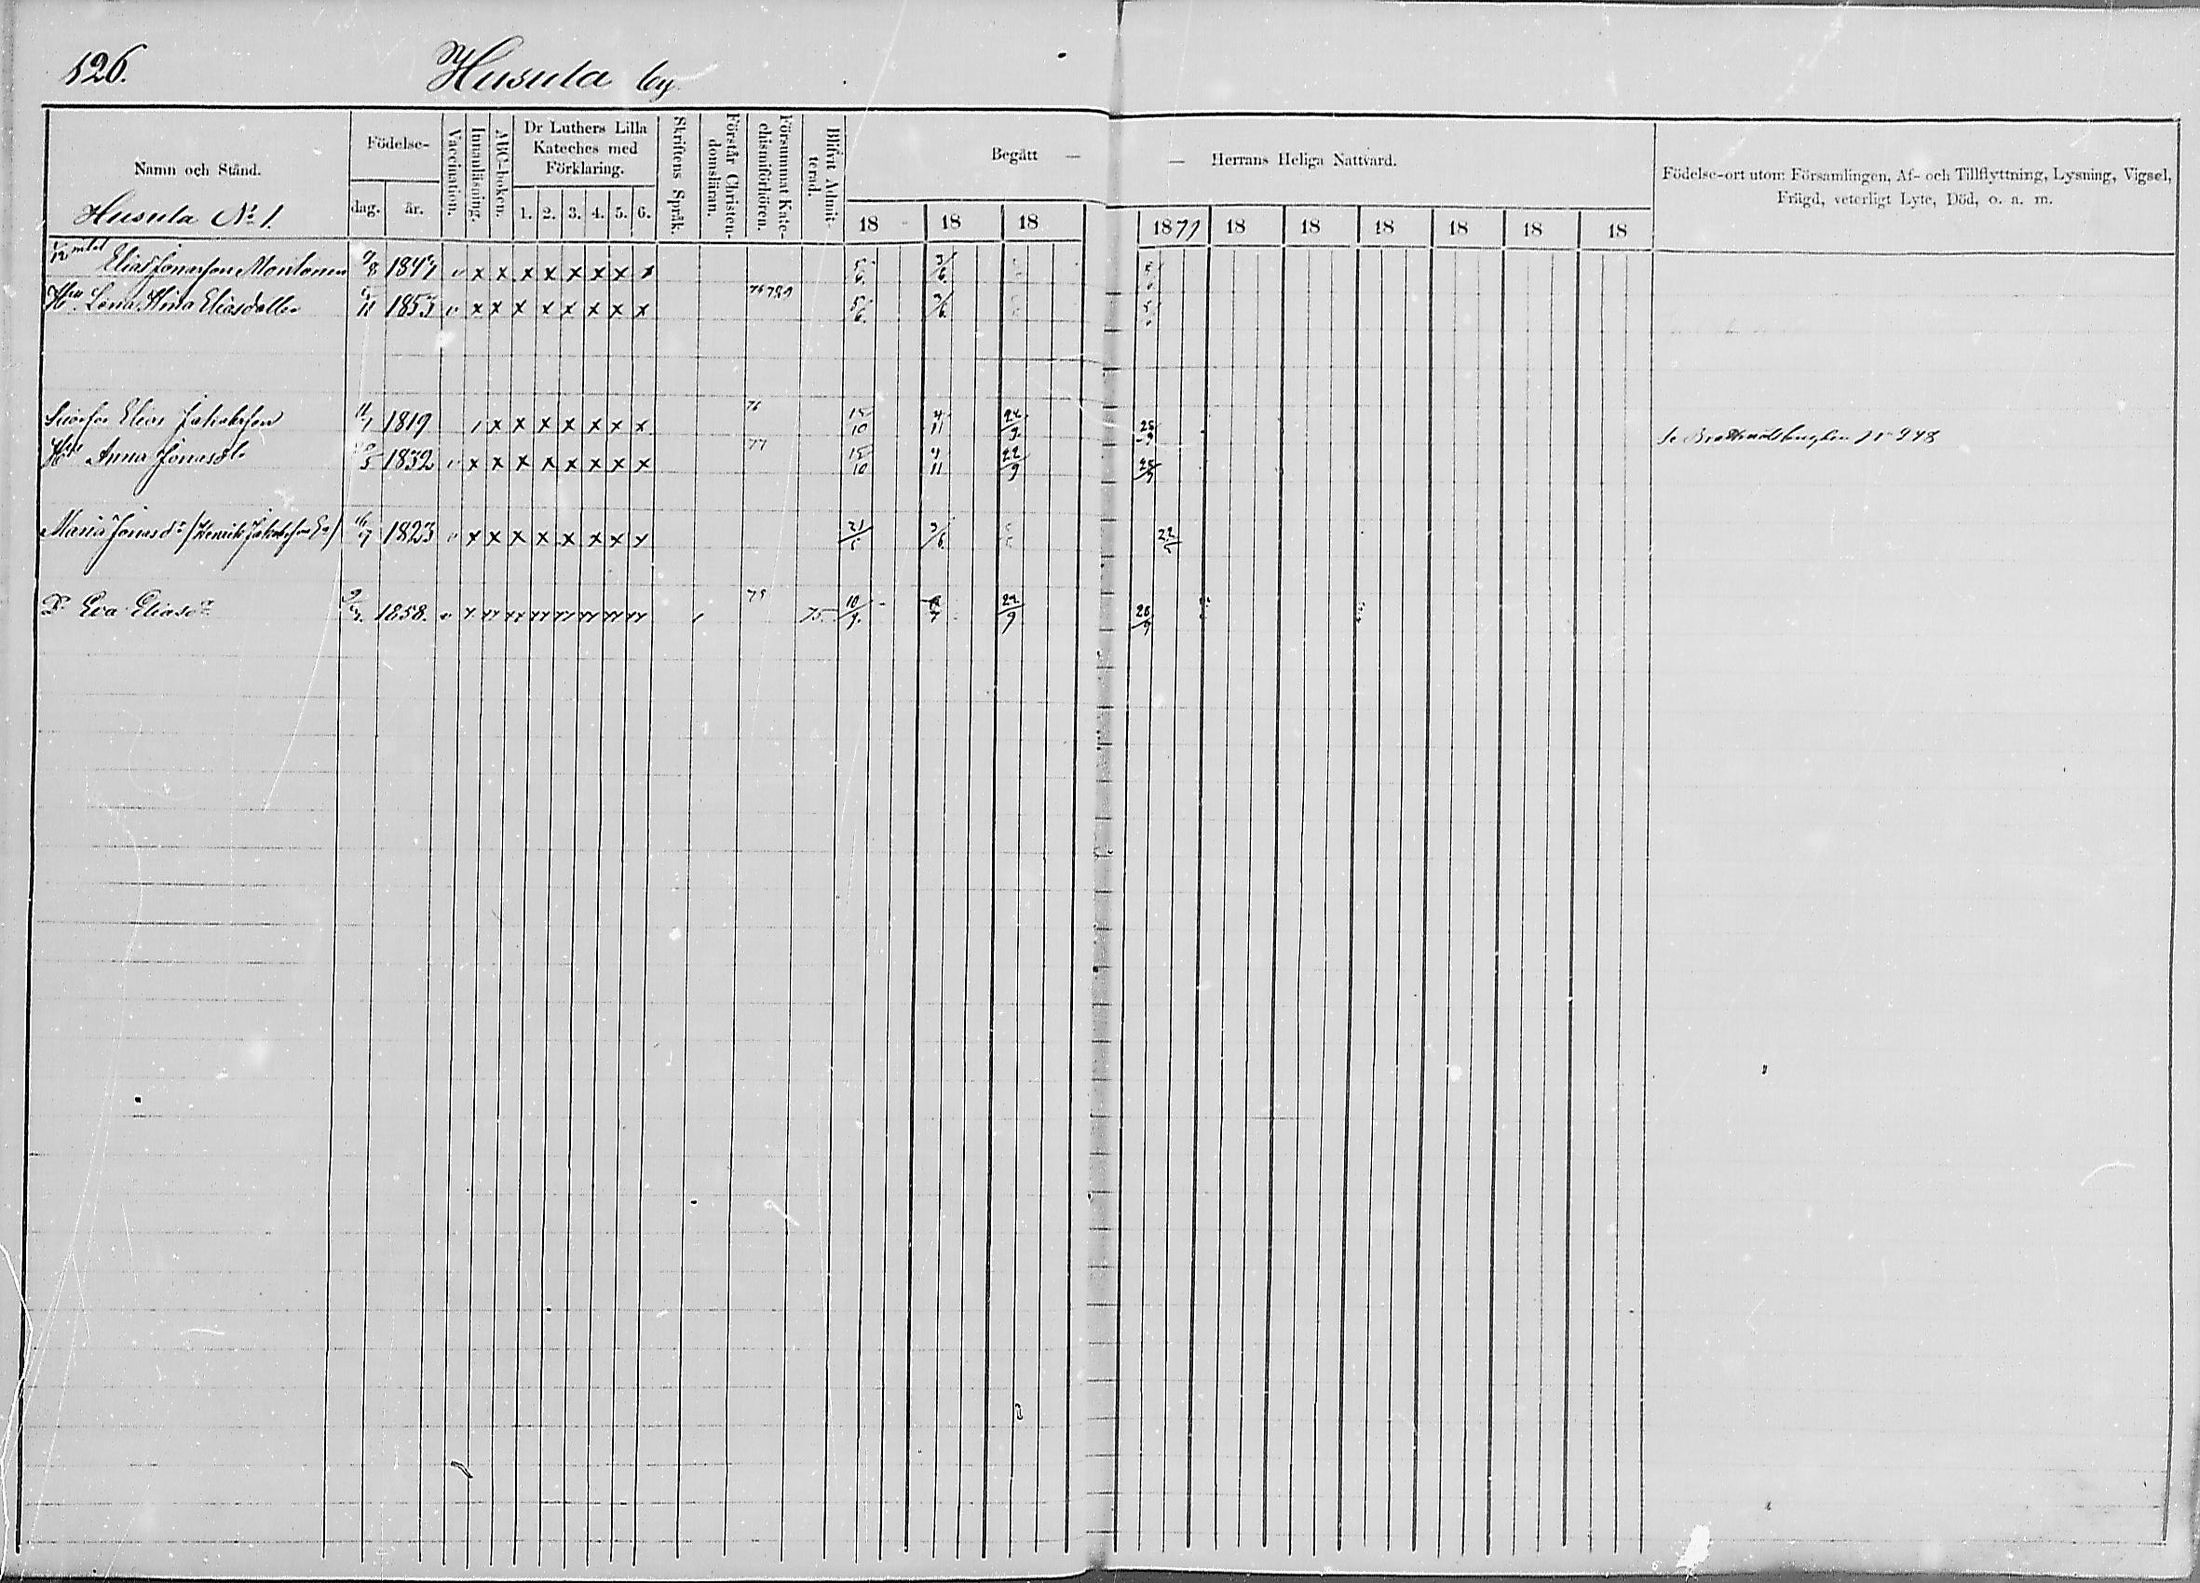 126. Husula by
Namn och Stånd.
Födelse-
dag. år.
Vaccination.
Innanläsning.
ABC-boken.
Dr Luthers Lilla Kateches med Förklaring.
1. 2. 3. 4. 5. 6.
Skriftens Språk.
Förstår Christendomsläran.
Försummat Katechismiförhören.
Blifvit Admitterad.
Begått — — Herrans Heliga Nattvard.
18 18 18 1879 18 18 18 18 18 18
Födelse-ort utom Församlingen, Af- och Tillflyttning, Lysning, Vigsel,
Frägd, veterligt Lyte, Död, o. a. m.
Husula No 1.
1/12 mtal Elias Jonasson 1847 v x x x x x x x x 5/6. 3/6.
Hu Lena Stina Eliasdotter 1853 v x x x x x x x x 5/6. 3/6.
Elias Jakobsson 11/1 1819 x x x x x x x 76 15/10 4/11 22/9. 28/9
Anna Jonasd. 1832 v x x x x x x x x 77 15/10 4/11 22/9 28/9 No 948
Maria Jonasdr (Henrik Jakobsson) 1823 v x x x x x x x x 21/5 3/6. 22/5
Dr Eva Eliasdr 1858. 75 75 10/9. 22/9 28/9